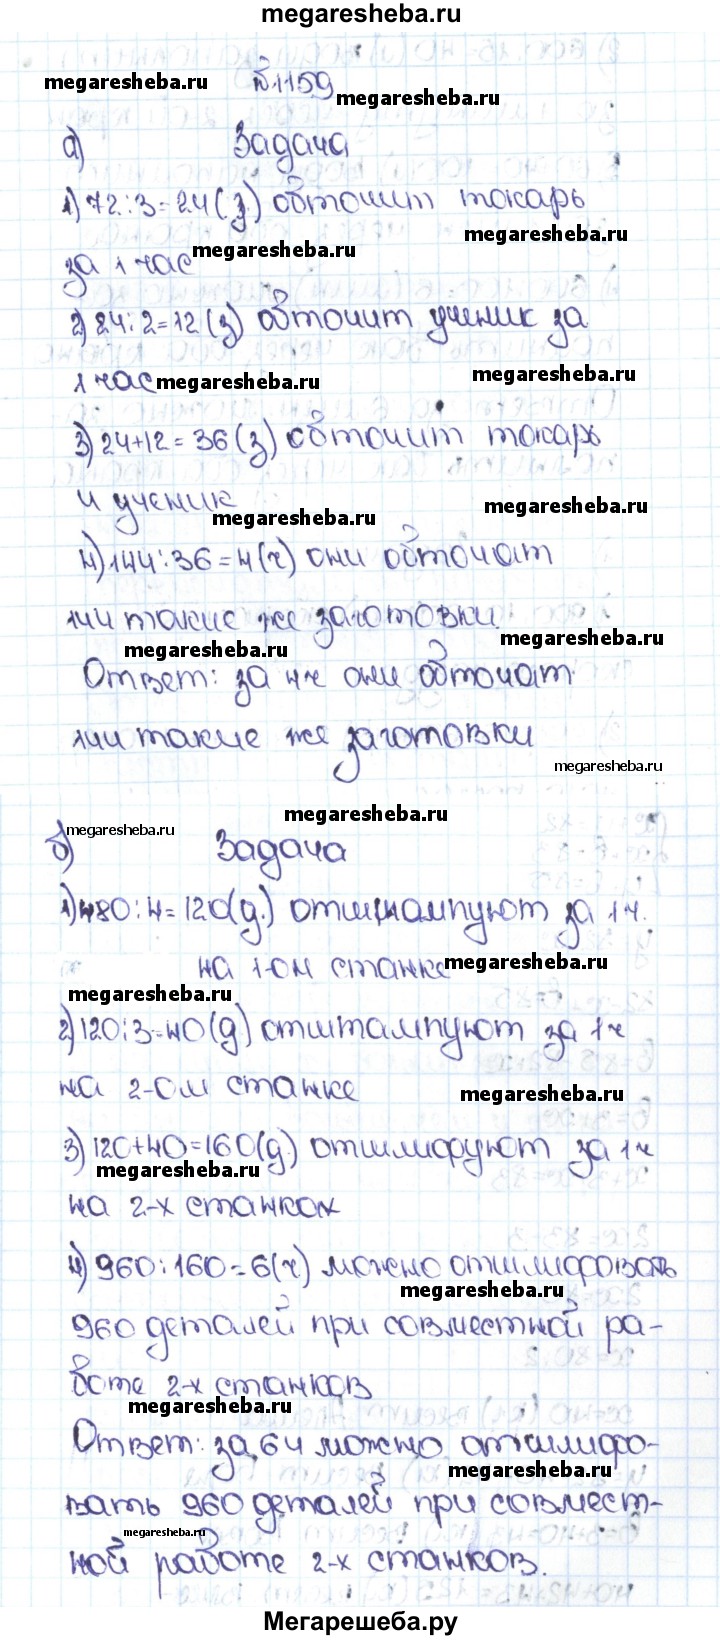 megaresheba.ru
megaresheba.ru №1159 megaresheba.ru
а) Задача
1) 72:3=24(з.) обточит токарь
megaresheba.ru megaresheba.ru
за 1 час
2) 24:2=12(з) обточит ученик за
1 час megaresheba.ru megaresheba.ru
3) 24+12=36(з) обточит токарь
и ученик megaresheba.ru megaresheba.ru
4) 144:36=4(ч) они обточат
144 такие же заготовки megaresheba.ru
megaresheba.ru
Ответ: за 4ч они обточат
144 такие же заготовки
megaresheba.ru
megaresheba.ru
megaresheba.ru
б) Задача
1) 480:4=120(д.) отштампуют за 1ч.
на 1-ом станке megaresheba.ru
megaresheba.ru
2) 120:3=40(д) отштампуют за 1ч
на 2-ом станке megaresheba.ru
3) 120+40=160(д.) отшлифуют за 1ч
megaresheba.ru
на 2-х станках
4) 960:160=6(ч) можно отшлифовать
megaresheba.ru
960 деталей при совместной ра-
боте 2-х станков
megaresheba.ru
Ответ: за 6ч можно отшлифо-
megaresheba.ru
вать 960 деталей при совмест-
megaresheba.ru
ной работе 2-х станков.
Мегарешеба.ру